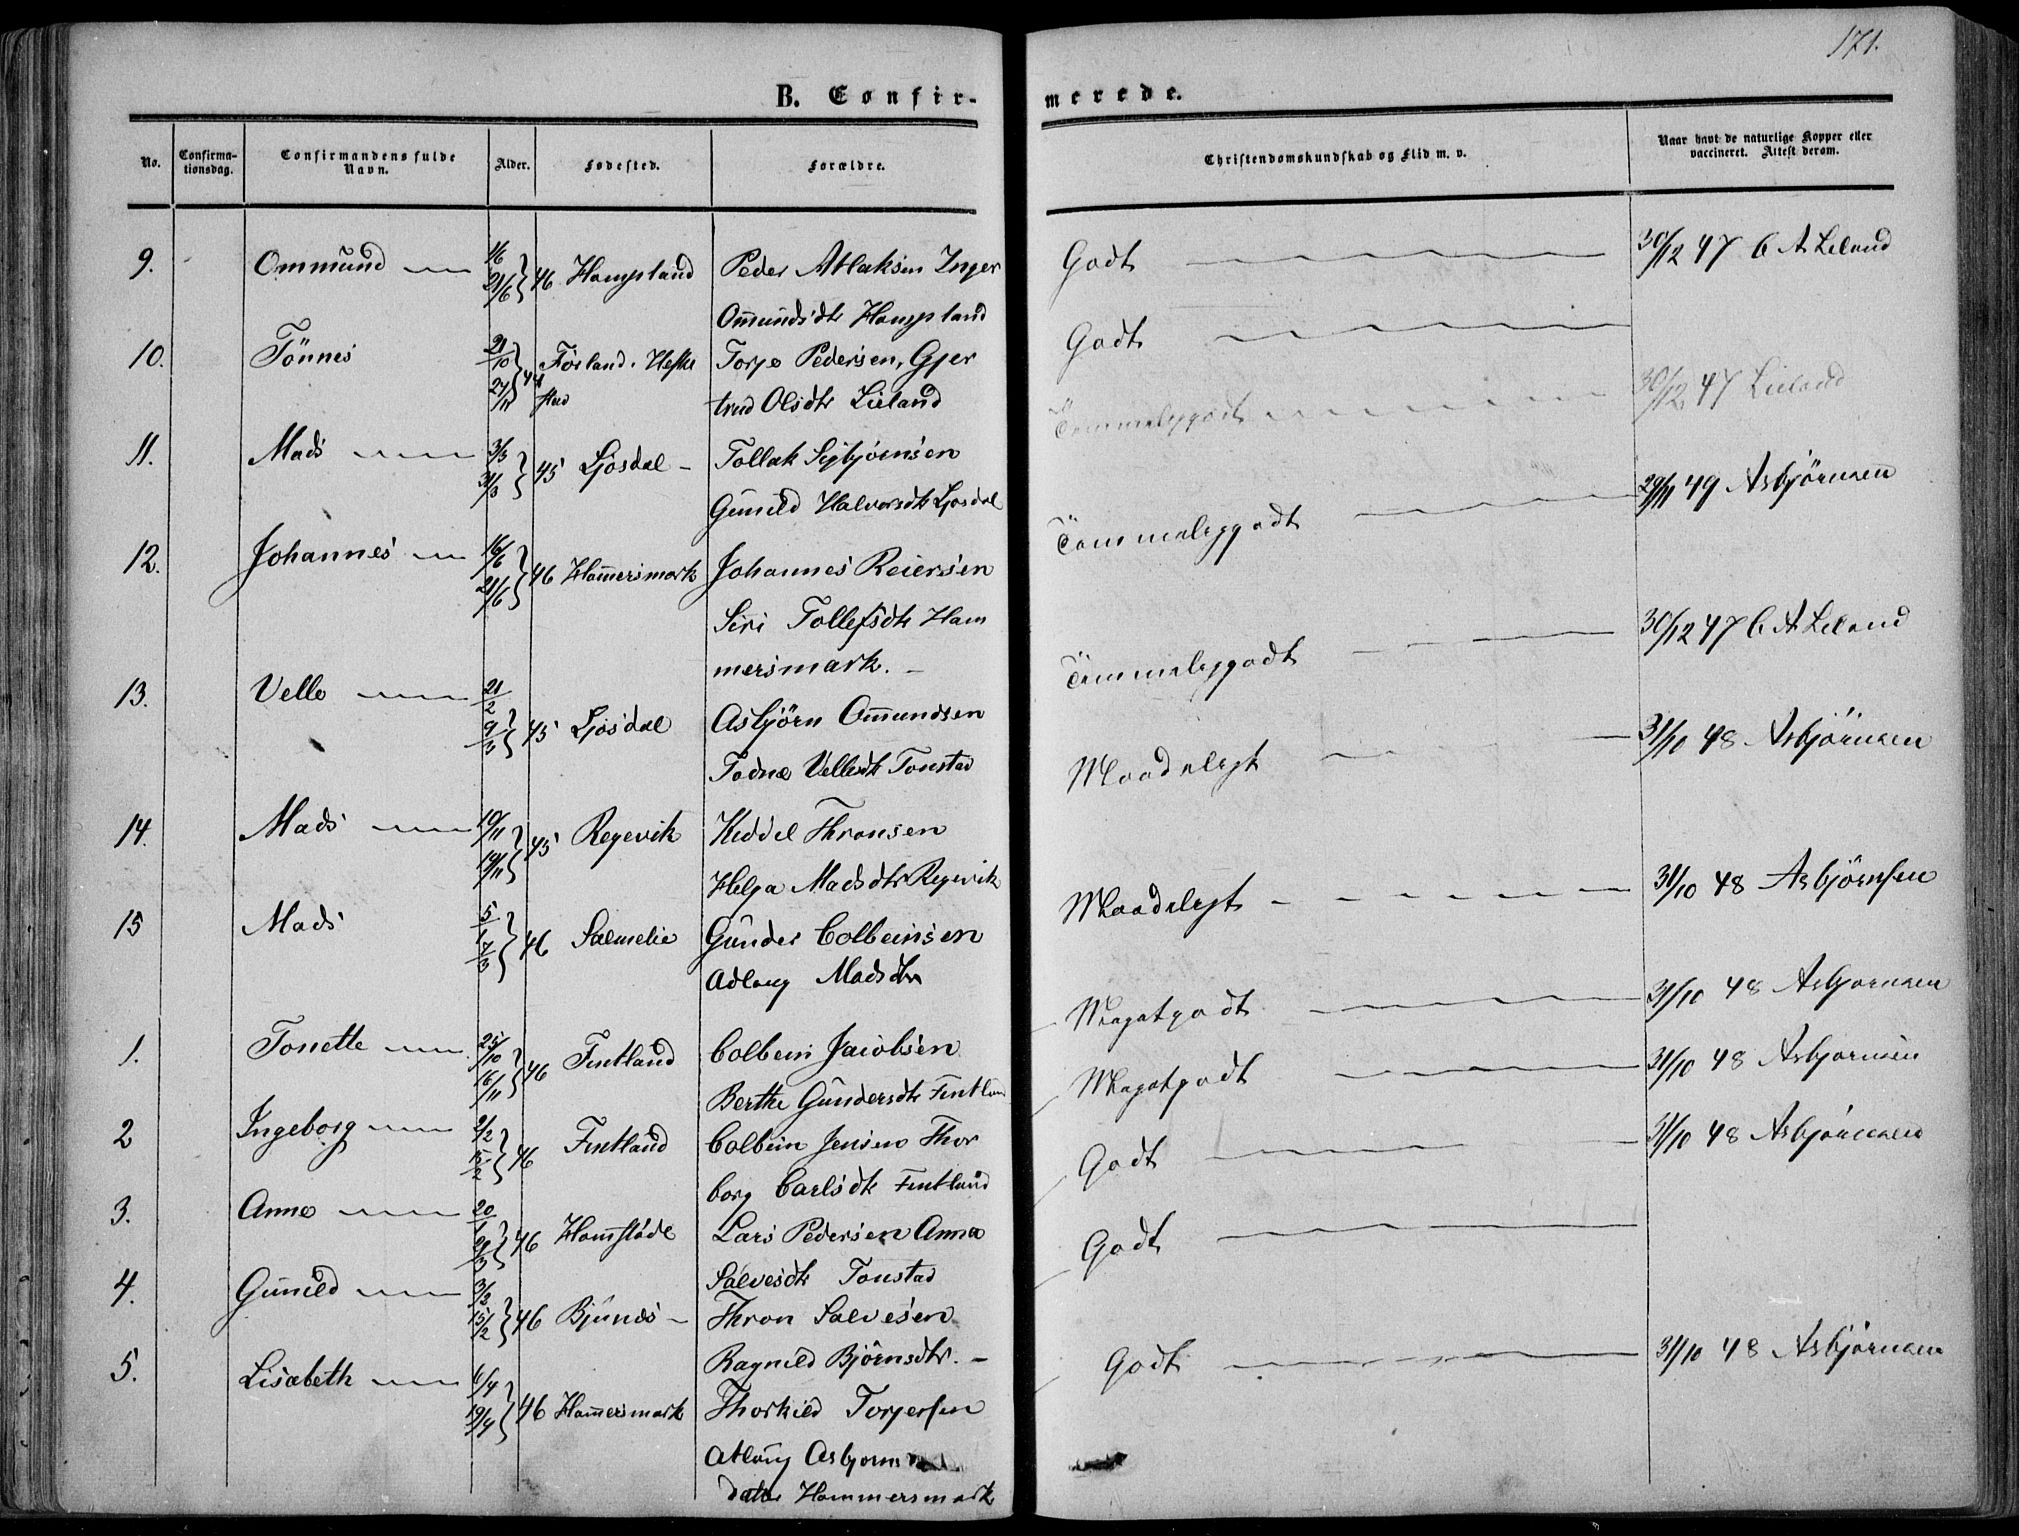 171.
B. Confir-
merede.
No.
Confirma-
tionsdag.
Confirmandens fulde
Navn.
Alder.
Fødested.
Forældre.
Christendomskundskab og Flid m. v.
Naar havt de naturlige Kopper eller
vaccineret. Attest derom.
9. Ommund 1/6 21/6 } 46 Hompland Peder Atlaksen Inger
Om̅undsdtr Hompland
Godt 30/12 47 C A Leland
10. Tönnes 21/10 27/11 } 44 Förland. Heske
stad
Torje Pedersen, Gjer
trud Olsdtr Lieland
Godt
11. Mads 3/3 31/3 } 45 Ljosdal - Tollak Sigbjörnsen
Gunild Halvorsdtr Ljosdal
Temmeliggodt 30/12 47 Lieland
12. Johannes 16/6 21/6 } 46 Ham̅ersmark Johannes Reiersen
Siri Tollefsdtr Ham
mersmark. -
Temmeliggodt 29/11 49 Asbjörnsen
13. Velle 21/2 9/3 } 45 Ljosdal Asbjörn Om̅undsen
Todne Vellesdtr Tonstad
Temmeliggodt 30/12 47 C A Leland
14. Mads 10/11 19/11 } 45 Regevik Keddel Thronsen
Helga Madsdtr Regevik
Maadelegt 31/10 48 Asbjörnsen
15 Mads 5/1 17/3 } 46 Salmelie Gunder Colbeinsen
Adlaug Madsdtr
Maadelegt 31/10 48 Asbjörnsen
1. Tonette 25/10 16/11 } 46 Fintland Colbein Jacobsen
Berthe Gundersdtr Fintland
Megetgodt 31/10 48 Asbjornsen
2 Ingeborg 2/2 15/2 } 46 Fintland Colbein Jensen Thor
borg Carlsdtr Fintland
Megetgodt 31/10 48 Asbjornsen
3. Anne 20/1 29/3 } 46 Ham̅stöde Lars Pedersen Anna
Salvesdtr Tonstad
Godt 31/10 48 Asbjörnsen
4. Gunild 3/2 15/2 } 46 Bjunes - Thron Salvesen
Ragnild Björnsdtr. -
Godt
5. Lisabeth 6/4 19/4 } 46 Ham̅ersmark Thorkild Torjersen
Atlaug Asbjorns
datter Hammersmark
Godt 31/10 48 Asbjörnsen